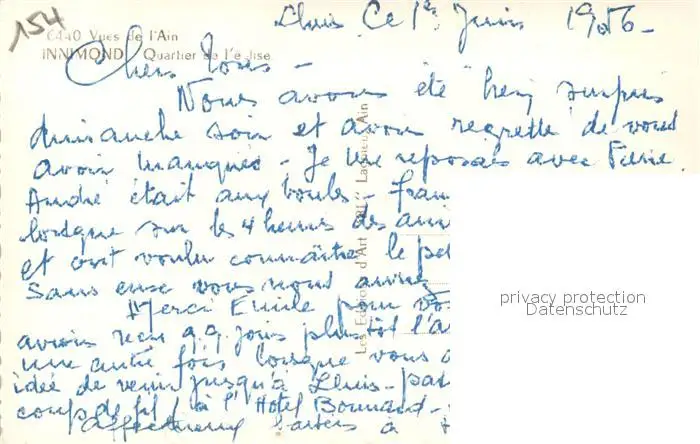 154
Lhuis Ce 1er Juin 1956 -
6440 Vues de l'Ain
INNIMOND Quartier de l'église
Chers Tous -
Nous avons été bien surpris
dimanche soir et avons regretté de vous
avoir manqués - Je me reposais avec Pierre
André était aux boules -
lorsque sur les 4 heures des
et ont voulu connaître le
Sans cuse vous nous
Merci Emile pour
avions reçu q.q. jours plustôt
une autre fois lorsque vous
idée de venir jusqu'à Lhuis -
coup de fil à l'Hôtel Bonnard -
Affectueux baisers à
Les Editions d'Art
Ain
privacy protection
Datenschutz